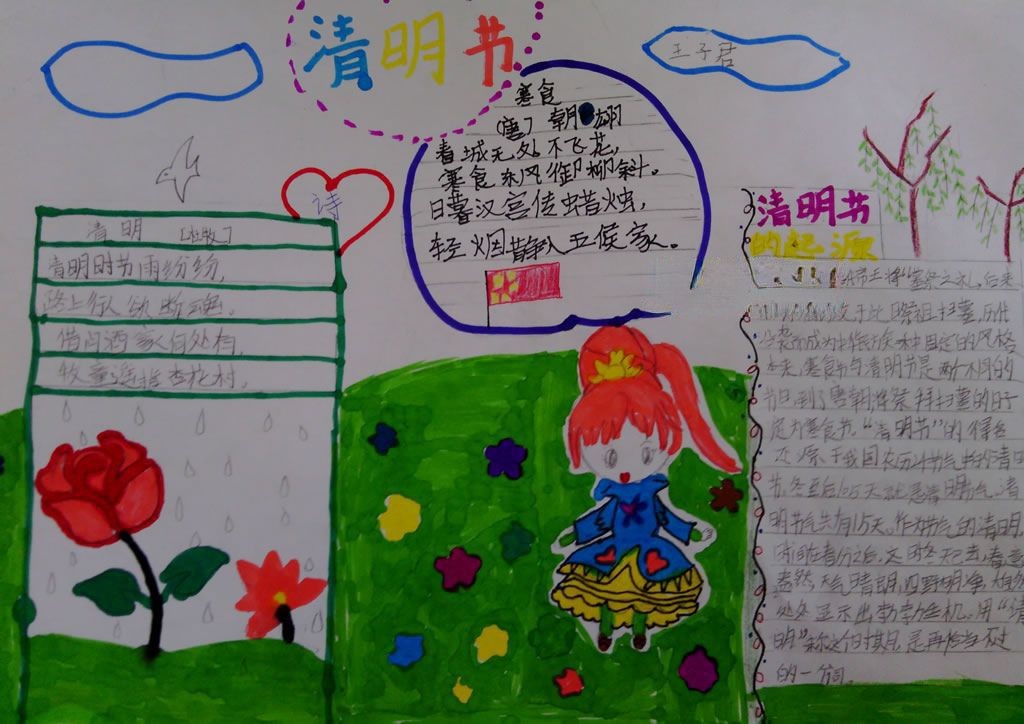 清明节
王子君
寒食
[唐] 朝翃
春城无处不飞花,
寒食东风御柳斜。
日暮汉宫传蜡烛,
轻烟散入五侯家。
诗
清明 [杜牧]
清明时节雨纷纷,
路上行人欲断魂。
借问酒家何处有,
牧童遥指杏花村.
清明节
的起源
帝王将“墓祭之礼,后来
于此日祭祖扫墓,历代
沿袭而成为中华民族一种固定的风格
本来,寒食节与清明节是两个不同的
节日,到了唐朝,将祭拜扫墓的日子
定为寒食节,“清明节”的得名
源于我国农历24节气中的清明
节.冬至后105天就是清明节气.清
明节气共有15天,作为节气的清明,
时间在春分之后.这时冬天已去,春意
盎然,天气清明,四野明净,大自然
处处显示出勃勃生机.用“清
明”称这个时期,是再恰当不过
的一词。